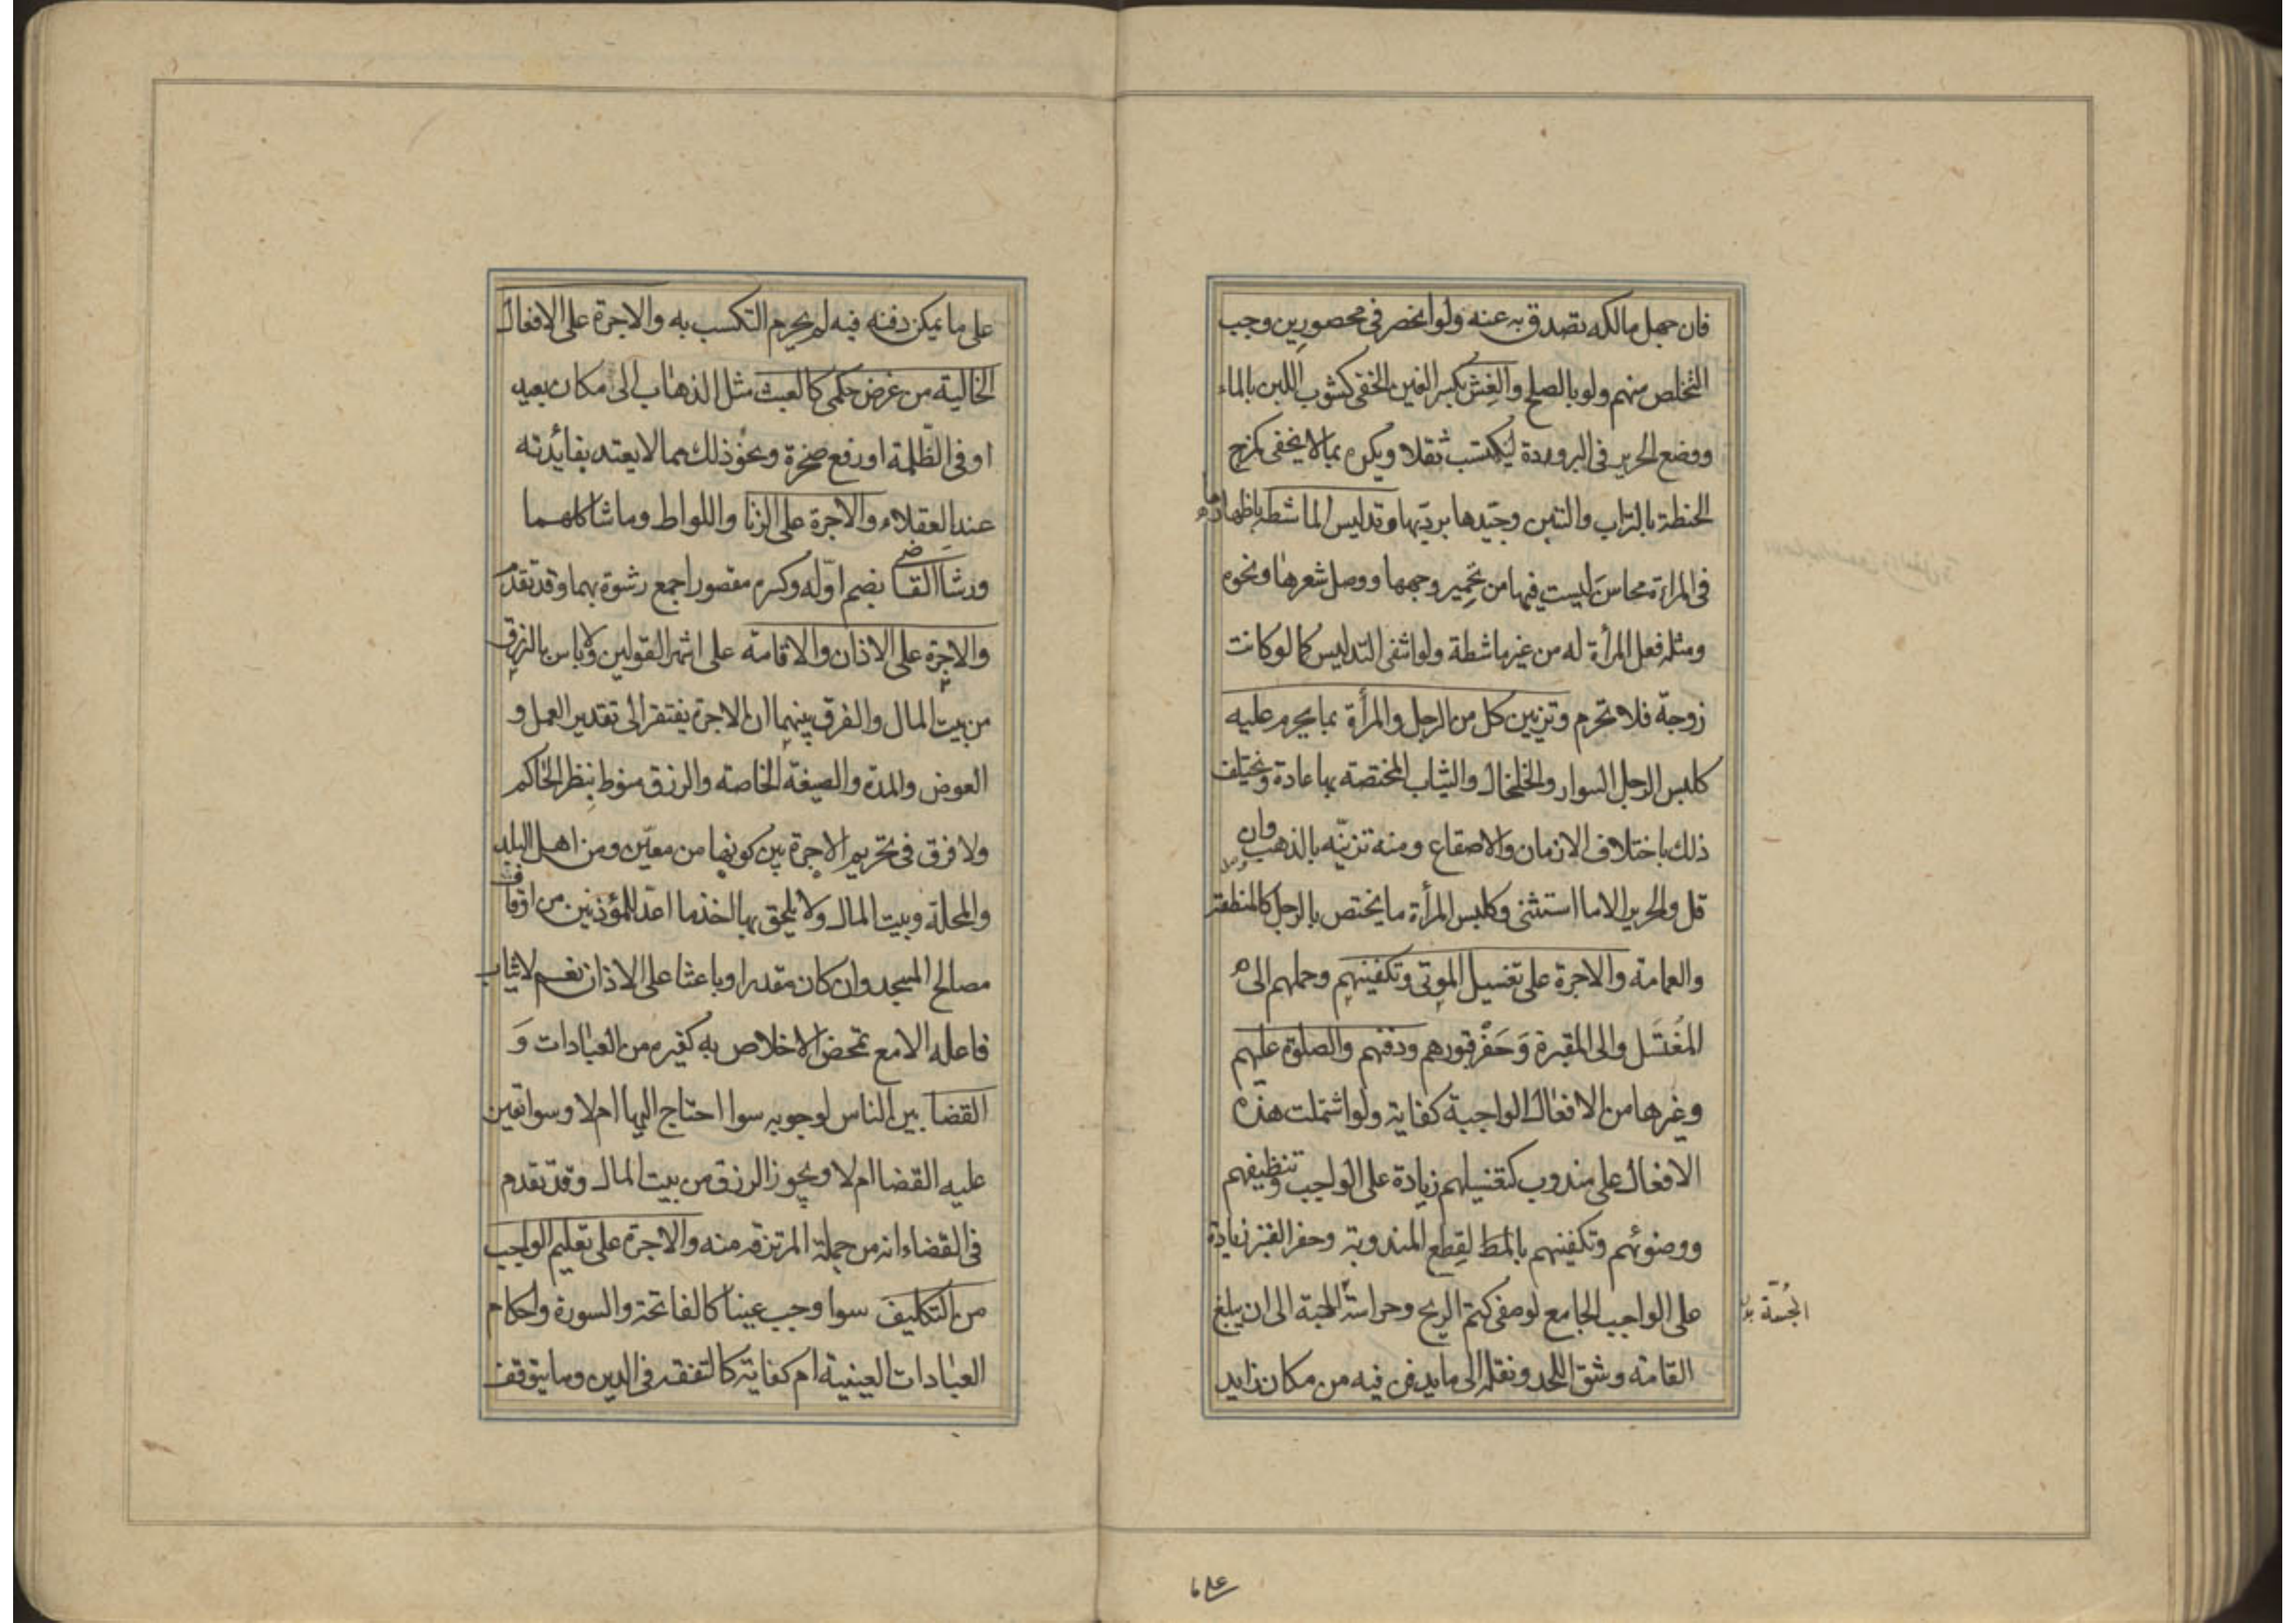 فان جهل مالكه تصدق به عنه ولو انحصر فى محصورين وجب
التخلص منهم ولو بالصلح والغِش بكسر الغين الخفى كشوب اللبن بالماء
ووضع الحرير فى البرودة ليكتسب ثقلا ويكره بما لا يخفى كمزج
الحنطة بالتراب والتبن وجيّدها برديّها وتدليس الماشطة باظهارها
فى المراة محاسنَ ليست فيها من تحمير وجهها ووصل شعرها ونحوه
ومثله فعل المرأة له من غير ماشطة ولو انتفى التدليس كما لو كانت
زوجة فلا تحرم وتزيين كل من الرجل والمرأة بما يحرم عليه
كلبس الرجل السوار والخلخال والثياب المختصة بها عادة ويختلف
ذلك باختلاف الازمان والاصقاع ومنه تزينّه بالذهب وان
قل والحرير الا ما استثنى وكلبس المرأة ما يختص بالرجل كالمنطقة
والعمامة والاجرة على تغسيل الموتى وتكفينهم وحملهم الى
المُغتَسَل والى المقبرة وَحَفْر قبورهم ودفنهم والصلوة عليهم
وغيرها من الافعال الواجبة كفاية ولو اشتملت هذه
الافعال على مندوب كتغسيلهم زيادة على الواجب وتنظيفهم
ووضوئهم وتكفينهم بالقطع المندوبة وحفر القبر زيادة
على الواجب الجامع لوصفى كتم الريح وحراسة الجثة الى ان يبلغ
القامة وشق اللحد ونقله الى ما يدفن فيه من مكان زايد
الجُثّة
على ما يمكن دفنه فيه لم يحرم التكسب به والاجرة على الافعال
الخالية من غرض حكمى كالعبث مثل الذهاب الى مكان بعيد
او فى الظّلمة او رفع صخرة ونحو ذلك مما لا يعتد بفايدته
عند العقلاء والاجرة على الزنا واللواط وما شاكلهما
ورشا القاضى بضم اوّله وكسره مقصورا جمع رشوة بهما وقد تقدم
والاجرة على الاذان والاقامة على اشهر القولين ولا باس بالرزق
من بيت المال والفرق بينهما ان الاجرة يفتقر الى تقدير العمل و
العوض والمدة والصيغة الخاصة والرزق منوط بنظر الحاكم
ولا فرق فى تحريم الاجرة بين كونها من معيّن ومن اهل البلد
والمحلة وبيت المال ولا يلحق بها اخذ ما اعدّ للمؤذنين من اوقاف
مصالح المسجد وان كان مقدرا وباعثا على الاذان نعم لا يثاب
فاعله الا مع تمحض الاخلاص به كغيره من العبادات وَ
القضا بين الناس لوجوبه سوا احتاج اليها ام لا وسوا تعين
عليه القضا ام لا ويجوز الرزق من بيت المال وقد تقدم
فى القضاء انه من جملة المرتزقة منه والاجرة على تعليم الواجب
من التكليف سوا وجب عينا كالفاتحة والسورة واحكام
العبادات العينية ام كفاية كالتفقه فى الدين وما يتوقف